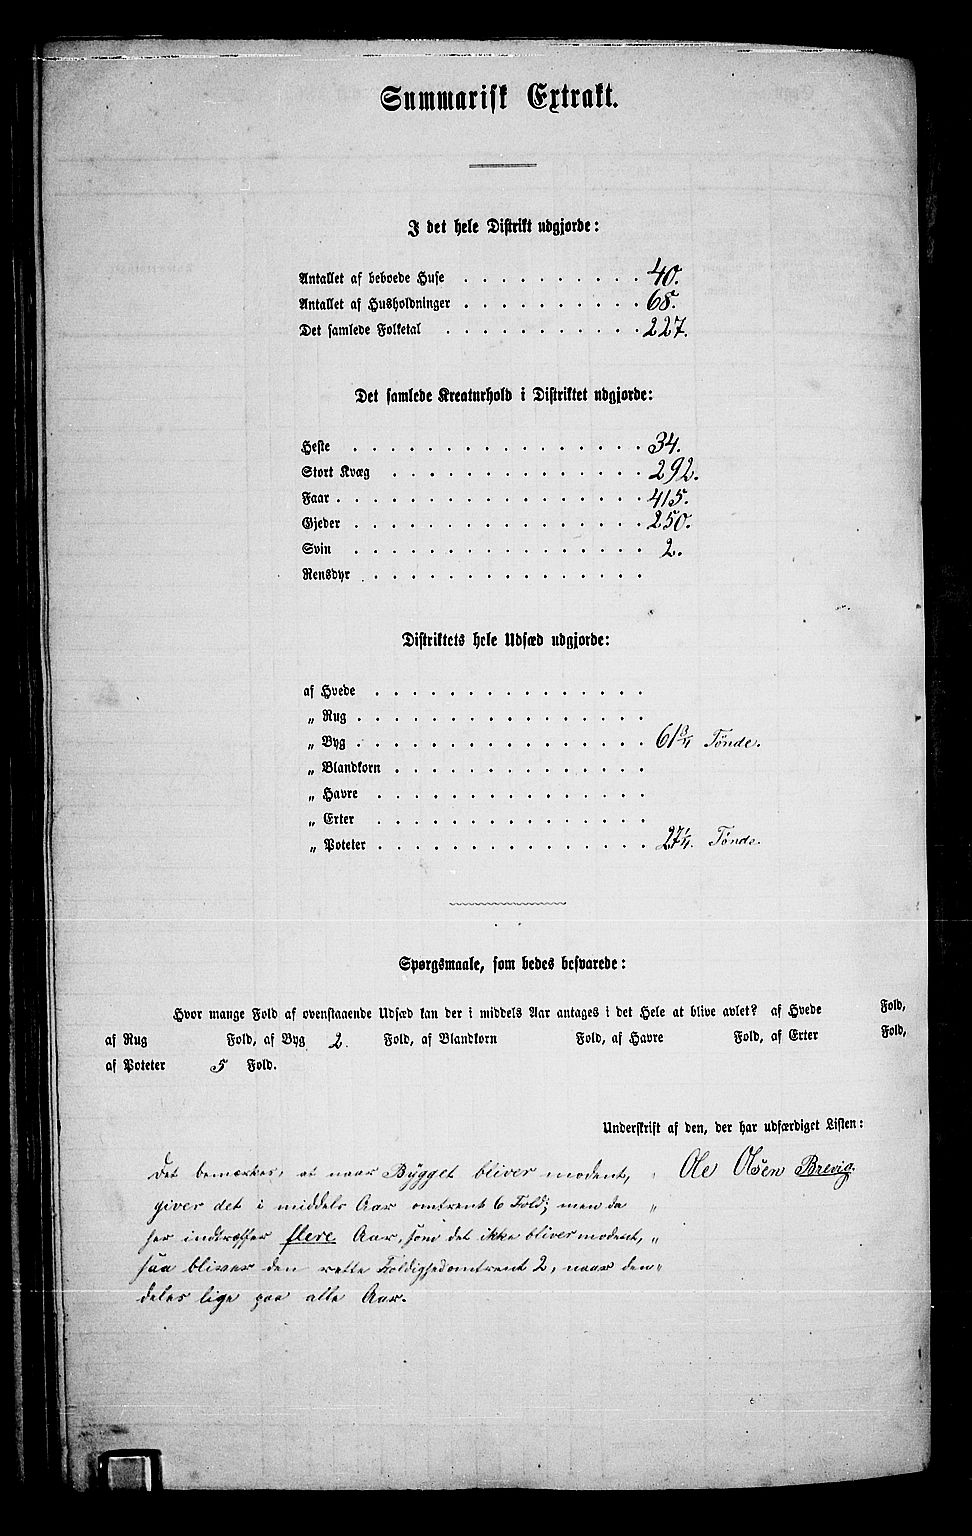 Summarisk Extrakt.
I det hele Distrikt udgjorde:
Antallet af beboede Huse . . . . . . . . . . 40.
Antallet af Husholdninger . . . . . . . . . . 68.
Det samlede Folketal . . . . . . . . . . . 227.
Det samlede Kreaturhold i Distriktet udgjorde:
Heste . . . . . . . . . . . . . . . . 34.
Stort Kvæg . . . . . . . . . . . . . . 292.
Faar . . . . . . . . . . . . . . . . . 415.
Gjeder . . . . . . . . . . . . . . . . 250.
Svin . . . . . . . . . . . . . . . . 2.
Rensdyr . . . . . . . . . . . . . . .
Distriktets hele Udsæd udgjorde:
af Hvede . . . . . . . . . . . . . . .
„ Rug . . . . . . . . . . . . . . . .
„ Byg . . . . . . . . . . . . . . . . 61 3/4 Tønde.
„ Blandkorn . . . . . . . . . . . . . .
„ Havre . . . . . . . . . . . . . . .
„ Erter . . . . . . . . . . . . . . .
„ Poteter . . . . . . . . . . . . . . . 27 1/4. Tønde.
Spørgsmaale, som bedes besvarede:
Hvor mange Fold af ovenstaaende Udsæd kan der i middels Aar antages i det Hele at blive avlet? af Hvede Fold,
af Rug Fold, af Byg 2. Fold, af Blandkorn Fold, af Havre Fold, af Erter Fold,
af Poteter 5 Fold.
Underskrift af den, der har udfærdiget Listen:
Ole Olsen Brevig.
Det bemærkes, at naar Bygget bliver modent,
giver det i middels Aar omtrent 6 Fold; men da
her indtræffer flere Aar, som det ikke bliver modent,
saa bliver den rette Foldighed omtrent 2, naar den
deles lige paa alle Aar.